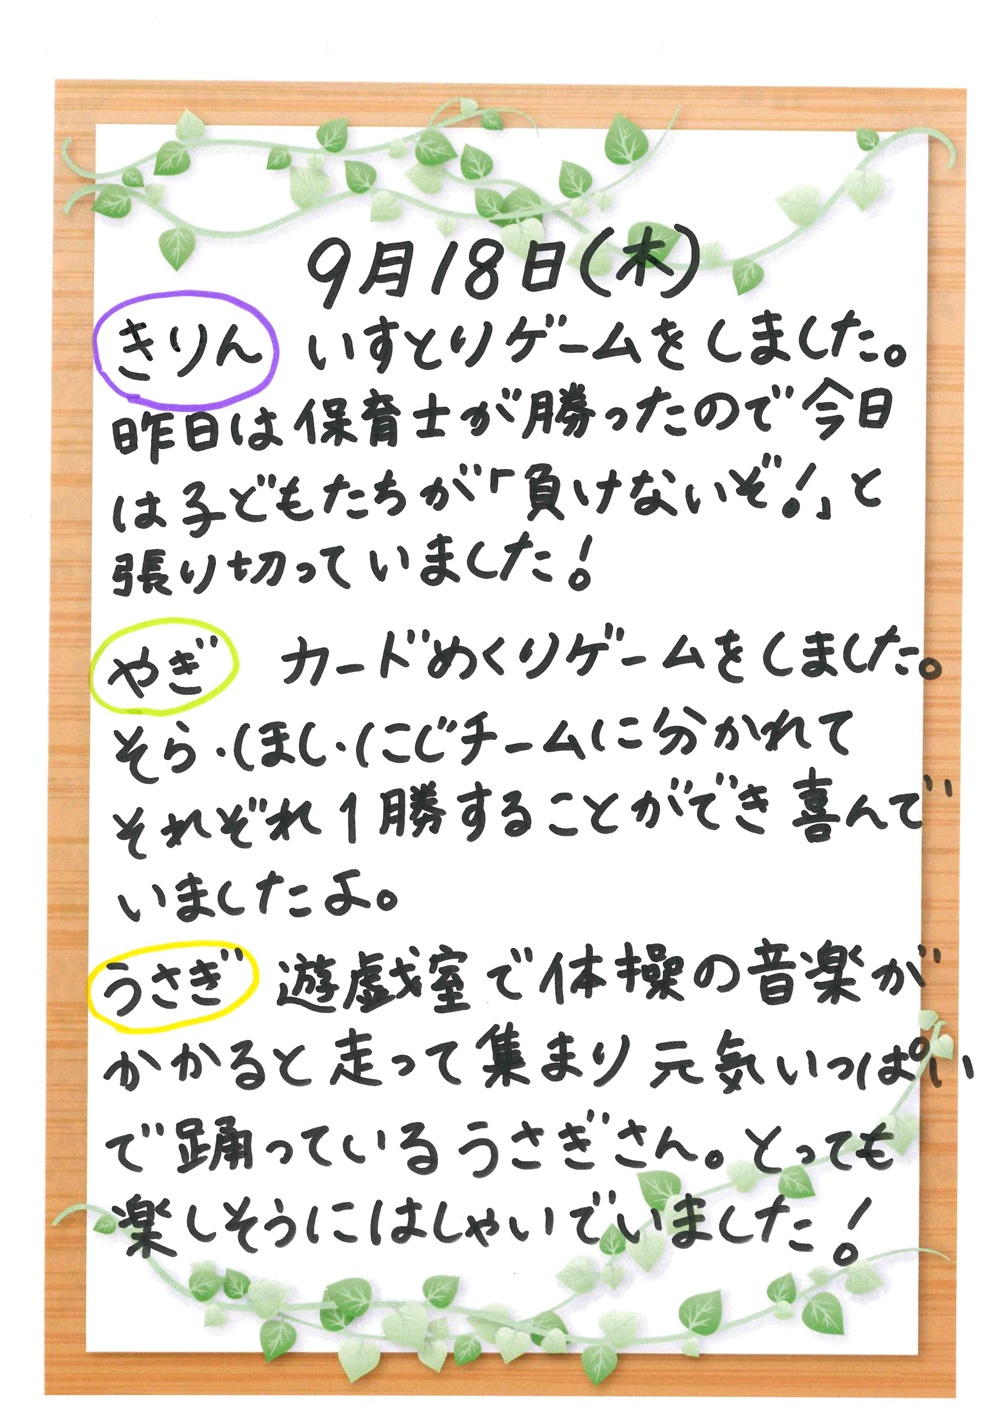 9月18日(木)
きりん いすとりゲームをしました。
昨日は保育士が勝ったので今日
は子どもたちが「負けないぞ！」と
張り切っていました！
やぎ カードめくりゲームをしました。
そら・ほし・にじチームに分かれて
それぞれ1勝することができ喜んで
いましたよ。
うさぎ 遊戯室で体操の音楽が
かかると走って集まり元気いっぱい
で踊っているうさぎさん。とっても
楽しそうにはしゃいでいました！